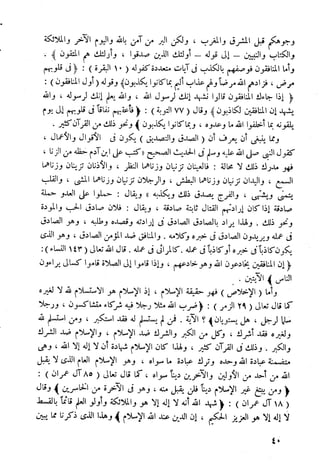 وجوهكم قبل المشرق والمغرب ، ولكن البر من آمن بالله واليوم الآخر والملائكة
والكتاب والنبيين – إلى قوله – أولئك الذين صدقوا ، وأولئك هم المتقون ) .
وأما المنافقون فوصفهم بالكذب فى آيات متعددة كقوله ( ١٠ البقرة ) : ( فى قلوبهم
مرض ، فزادهم الله مرضاً ولهم عذاب أليم بما كانوا يكذبون ) وقوله ( أول المنافقون ) :
( إذا جاءك المنافقون قالوا نشهد إنك لرسول الله ، والله يعلم إنك لرسوله ، والله
يشهد إن المنافقين لكاذبون ) وقال ( ٧٧ التوبة ) : ( فأعقبهم نفاقاً فى قلوبهم إلى يوم
يلقونه بما أخلفوا الله ما وعدوه ، وبما كانوا يكذبون ) ونحو ذلك من القرآن كثير .
ومما ينبغى أن يعرف أن ( الصدق والتصديق ) يكون فى الأقوال والأعمال ،
كقول النبى صلى الله عليه وسلم فى الحديث الصحيح « كتب على ابن آدم حظه من الزنا ،
فهو مدرك ذلك لا محالة : فالعينان تزنيان وزناهما النظر ، والأذنان تزنيان وزناهما
السمع ، واليدان تزنيان وزناهما البطش ، والرجلان تزنيان وزناهما المشى ، والقلب
يتمنى ويشتهى ، والفرج يصدق ذلك ويكذبه » ويقال : حملوا على العدو حملة
صادقة إذا كان إرادتهم القتال ثابتة صادقة ، ويقال : فلان صادق الحب والمودة
ونحو ذلك . ولهذا يراد بالصادق الصادق فى إرادته وقصده وطلبه ، وهو الصادق
فى عمله ويريدون الصادق فى خبره وكلامه . والمنافق ضد المؤمن الصادق ، وهو الذى
يكون كاذباً فى خبره أو كاذباً فى عمله كالمرائى فى عمله . قال الله تعالى ( ١٤٣ النساء ) :
( إن المنافقين يخادعون الله وهو خادعهم ، وإذا قاموا إلى الصلاة قاموا كسالى يراءون
الناس ) الآيتين .
وأما ( الإخلاص ) فهو حقيقة الإسلام ، إذ الإسلام هو الاستسلام لله لا لغيره
كما قال تعالى ( ٢٩ الزمر ) : ( ضرب الله مثلا رجلا فيه شركاء متشاكسون ، ورجلا
سالما لرجل ، هل يستويان ) ؟ الآية . فمن لم يستسلم له فقد استكبر ، ومن استسلم لله
ولغيره فقد أشرك ، وكل من الكبر والشرك ضد الإسلام ، والإسلام ضد الشرك
والكبر . وذلك فى القرآن كثير ، ولهذا كان الإسلام شهادة أن لا إله إلا الله ، وهى
متضمنة عبادة الله وحده وترك عبادة ما سواه ، وهو الإسلام العام الذى لا يقبل
الله من أحد من الأولين والآخرين ديناً سواه ، كما قال تعالى ( ٨٥ آل عمران ) :
( ومن يبتغ غير الإسلام ديناً فلن يقبل منه ، وهو فى الآخرة من الخاسرين ) وقال
( ١٨ آل عمران ) : ( شهد الله أنه لا إله إلا هو والملائكة وأولو العلم قائماً بالقسط
لا إله إلا هو العزيز الحكيم ، إن الدين عند الله الإسلام ) وهذا الذى ذكرنا مما يبين
٤٠